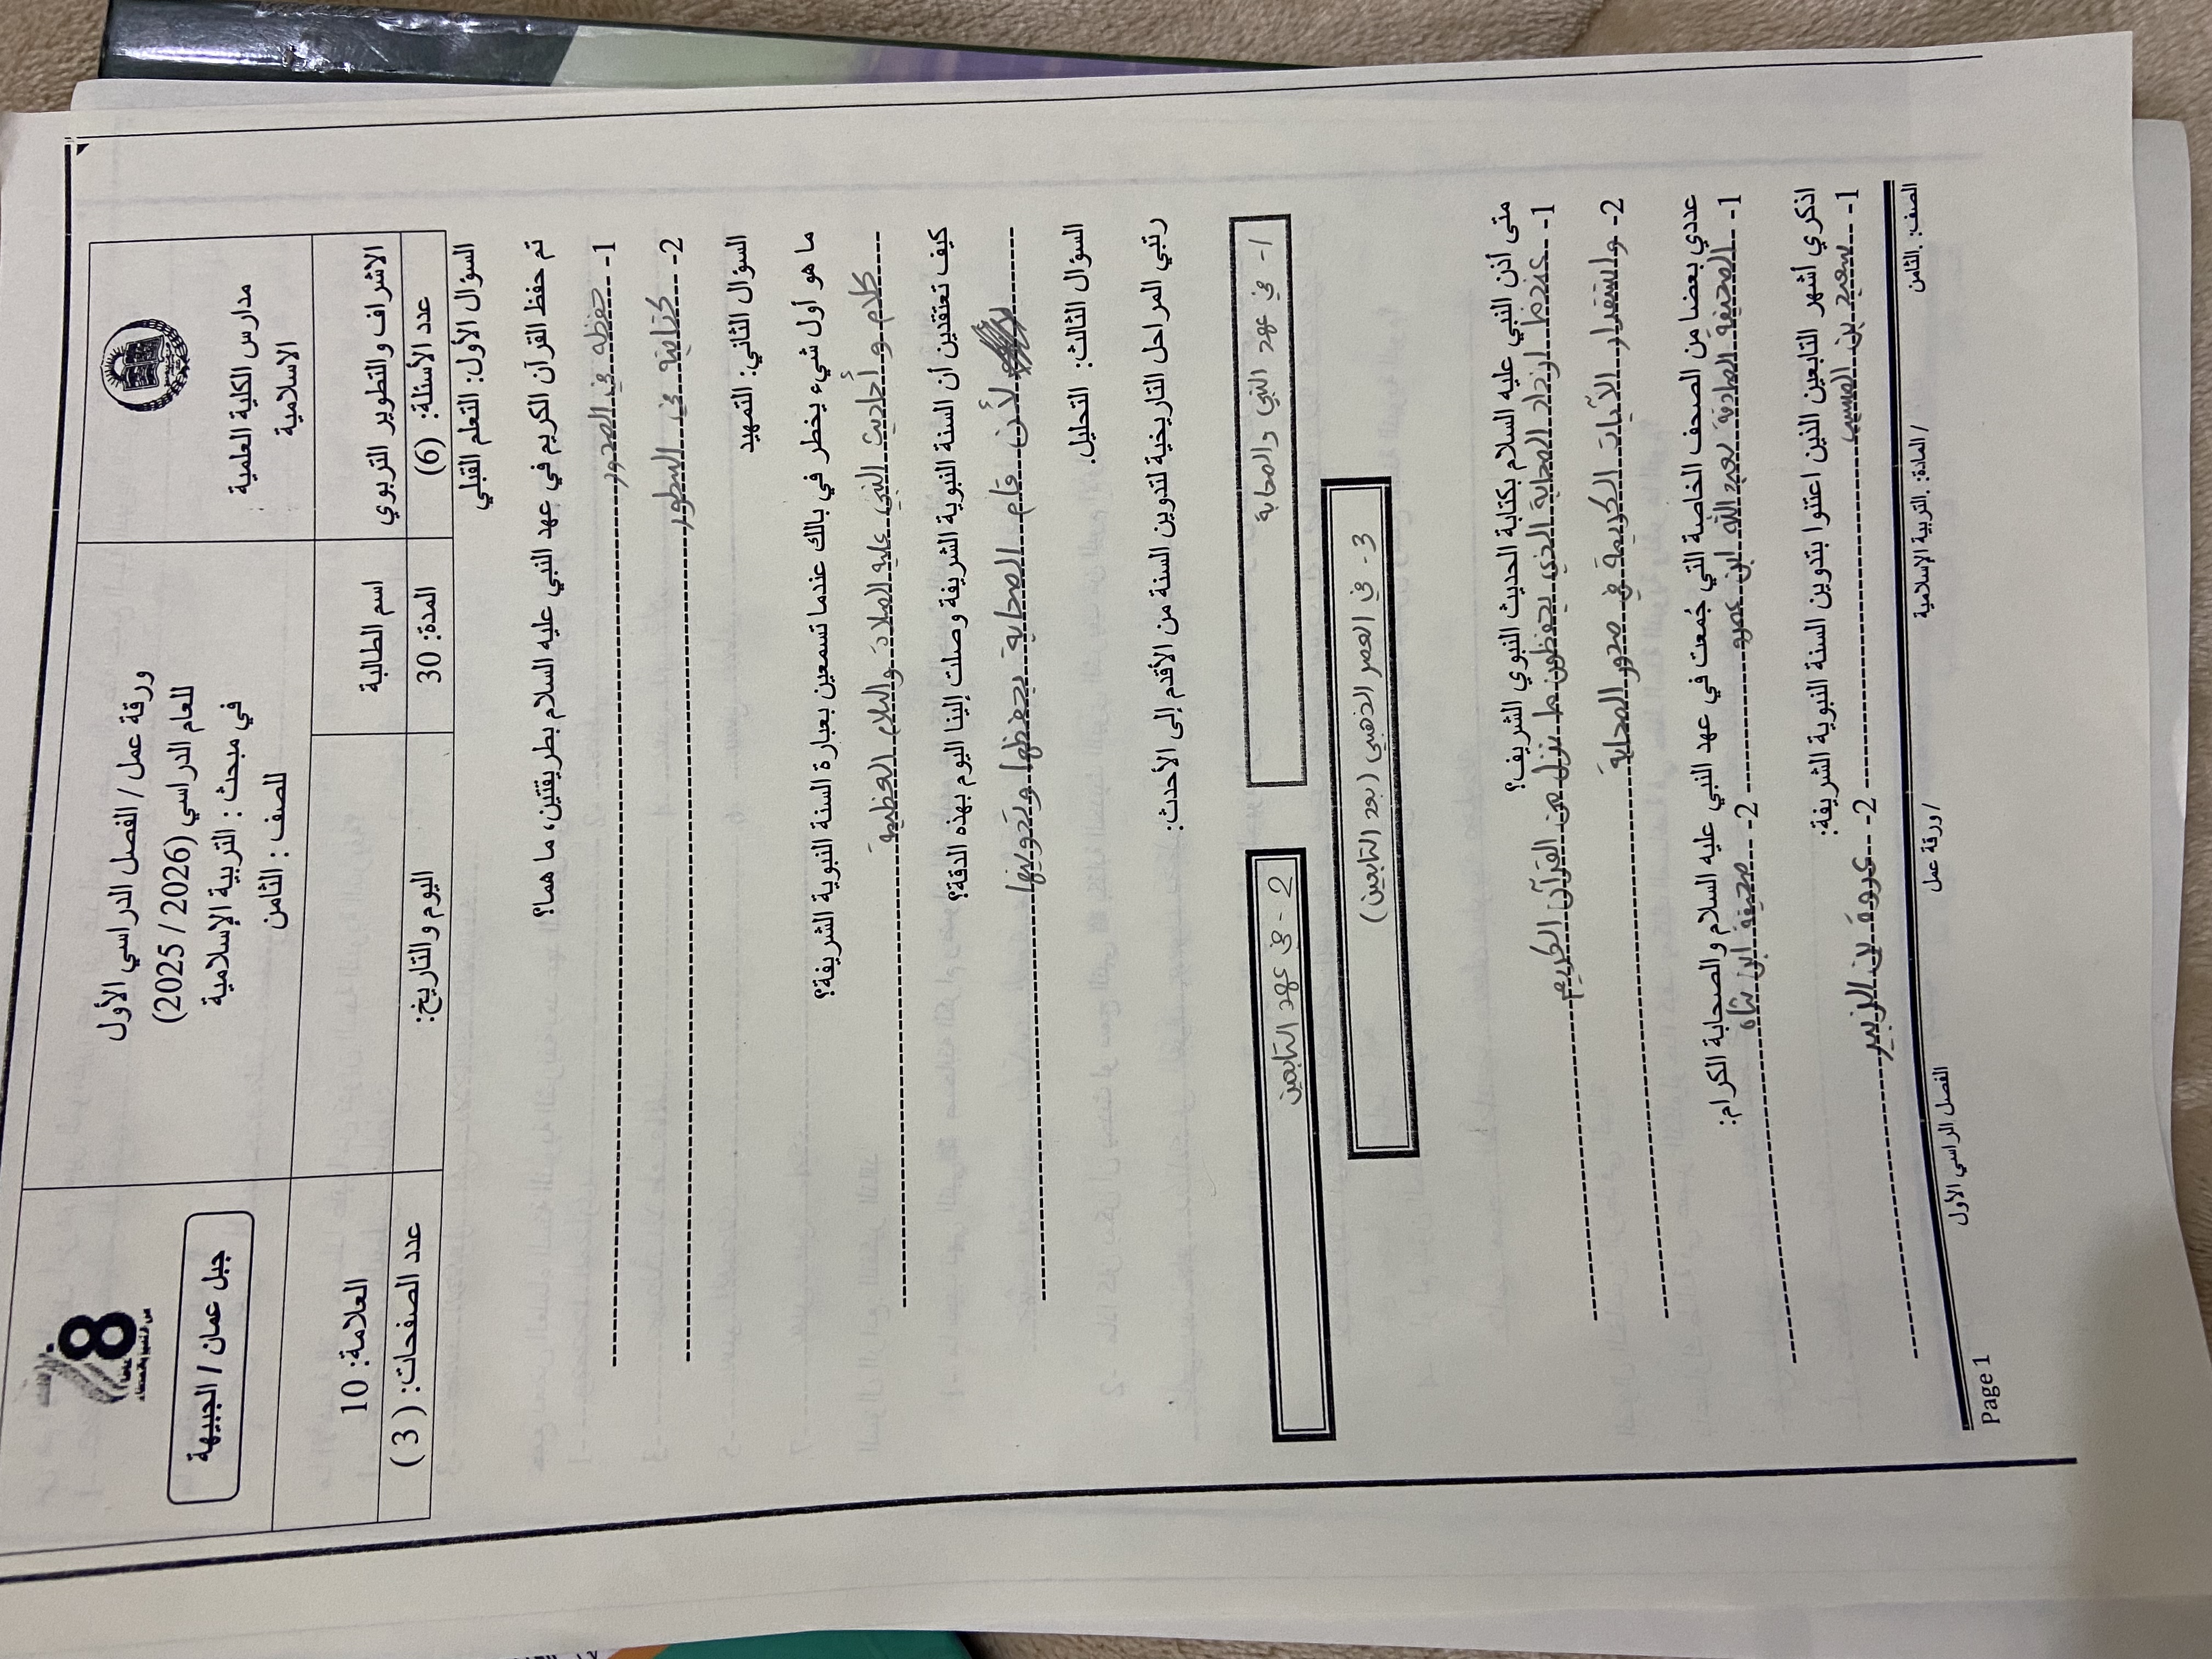 مدارس الكلية العلمية
الاسلامية
ورقة عمل / الفصل الدراسي الأول
للعام الدراسي (2025 / 2026)
في مبحث : التربية الإسلامية
للصف : الثامن
78
جبل عمان / الجبيهة
الاشراف والتطوير التربوي
اسم الطالبة
العلامة: 10
عدد الأسئلة: (6)
المدة: 30
اليوم والتاريخ:
عدد الصفحات: ( 3 )
السؤال الأول: التعلم القبلي
تم حفظ القرآن الكريم في عهد النبي عليه السلام بطريقتين، ما هما؟
1- حفظه في الصدور
2- كتابته في السطور
السؤال الثاني: التمهيد
ما هو أول شيء يخطر في بالك عندما تسمعين بعبارة السنة النبوية الشريفة؟
كلام و أحاديث النبي عليه الصلاة والسلام العظيمة
كيف تعتقدين أن السنة النبوية الشريفة وصلت إلينا اليوم بهذه الدقة؟
لأن قام الصحابة بحفظها وتدوينها
السؤال الثالث: التحليل.
رتبي المراحل التاريخية لتدوين السنة من الأقدم إلى الأحدث:
1- في عهد النبي والصحابة
2- في عهد التابعين
3- في العصر الذهبي (بعد التابعين)
متى أذن النبي عليه السلام بكتابة الحديث النبوي الشريف؟
1- عندما ازداد الصحابة الذي يحفظون ما نزل من القرآن الكريم
2- واستقرار الآيات الكريمة في صدور الصحابة
عددي بعضا من الصحف الخاصة التي جُمعت في عهد النبي عليه السلام والصحابة الكرام:
1- الصحيفة الصادقة لعبد الله ابن عمرو 2- صحيفة ابن شاه
اذكري أشهر التابعين الذين اعتنوا بتدوين السنة النبوية الشريفة:
1- سعيد بن المسيب 2- عروة بن الزبير
الصف: .الثامن / المادة: .التربية الإسلامية /ورقة عمل الفصل الراسي الأول
Page 1